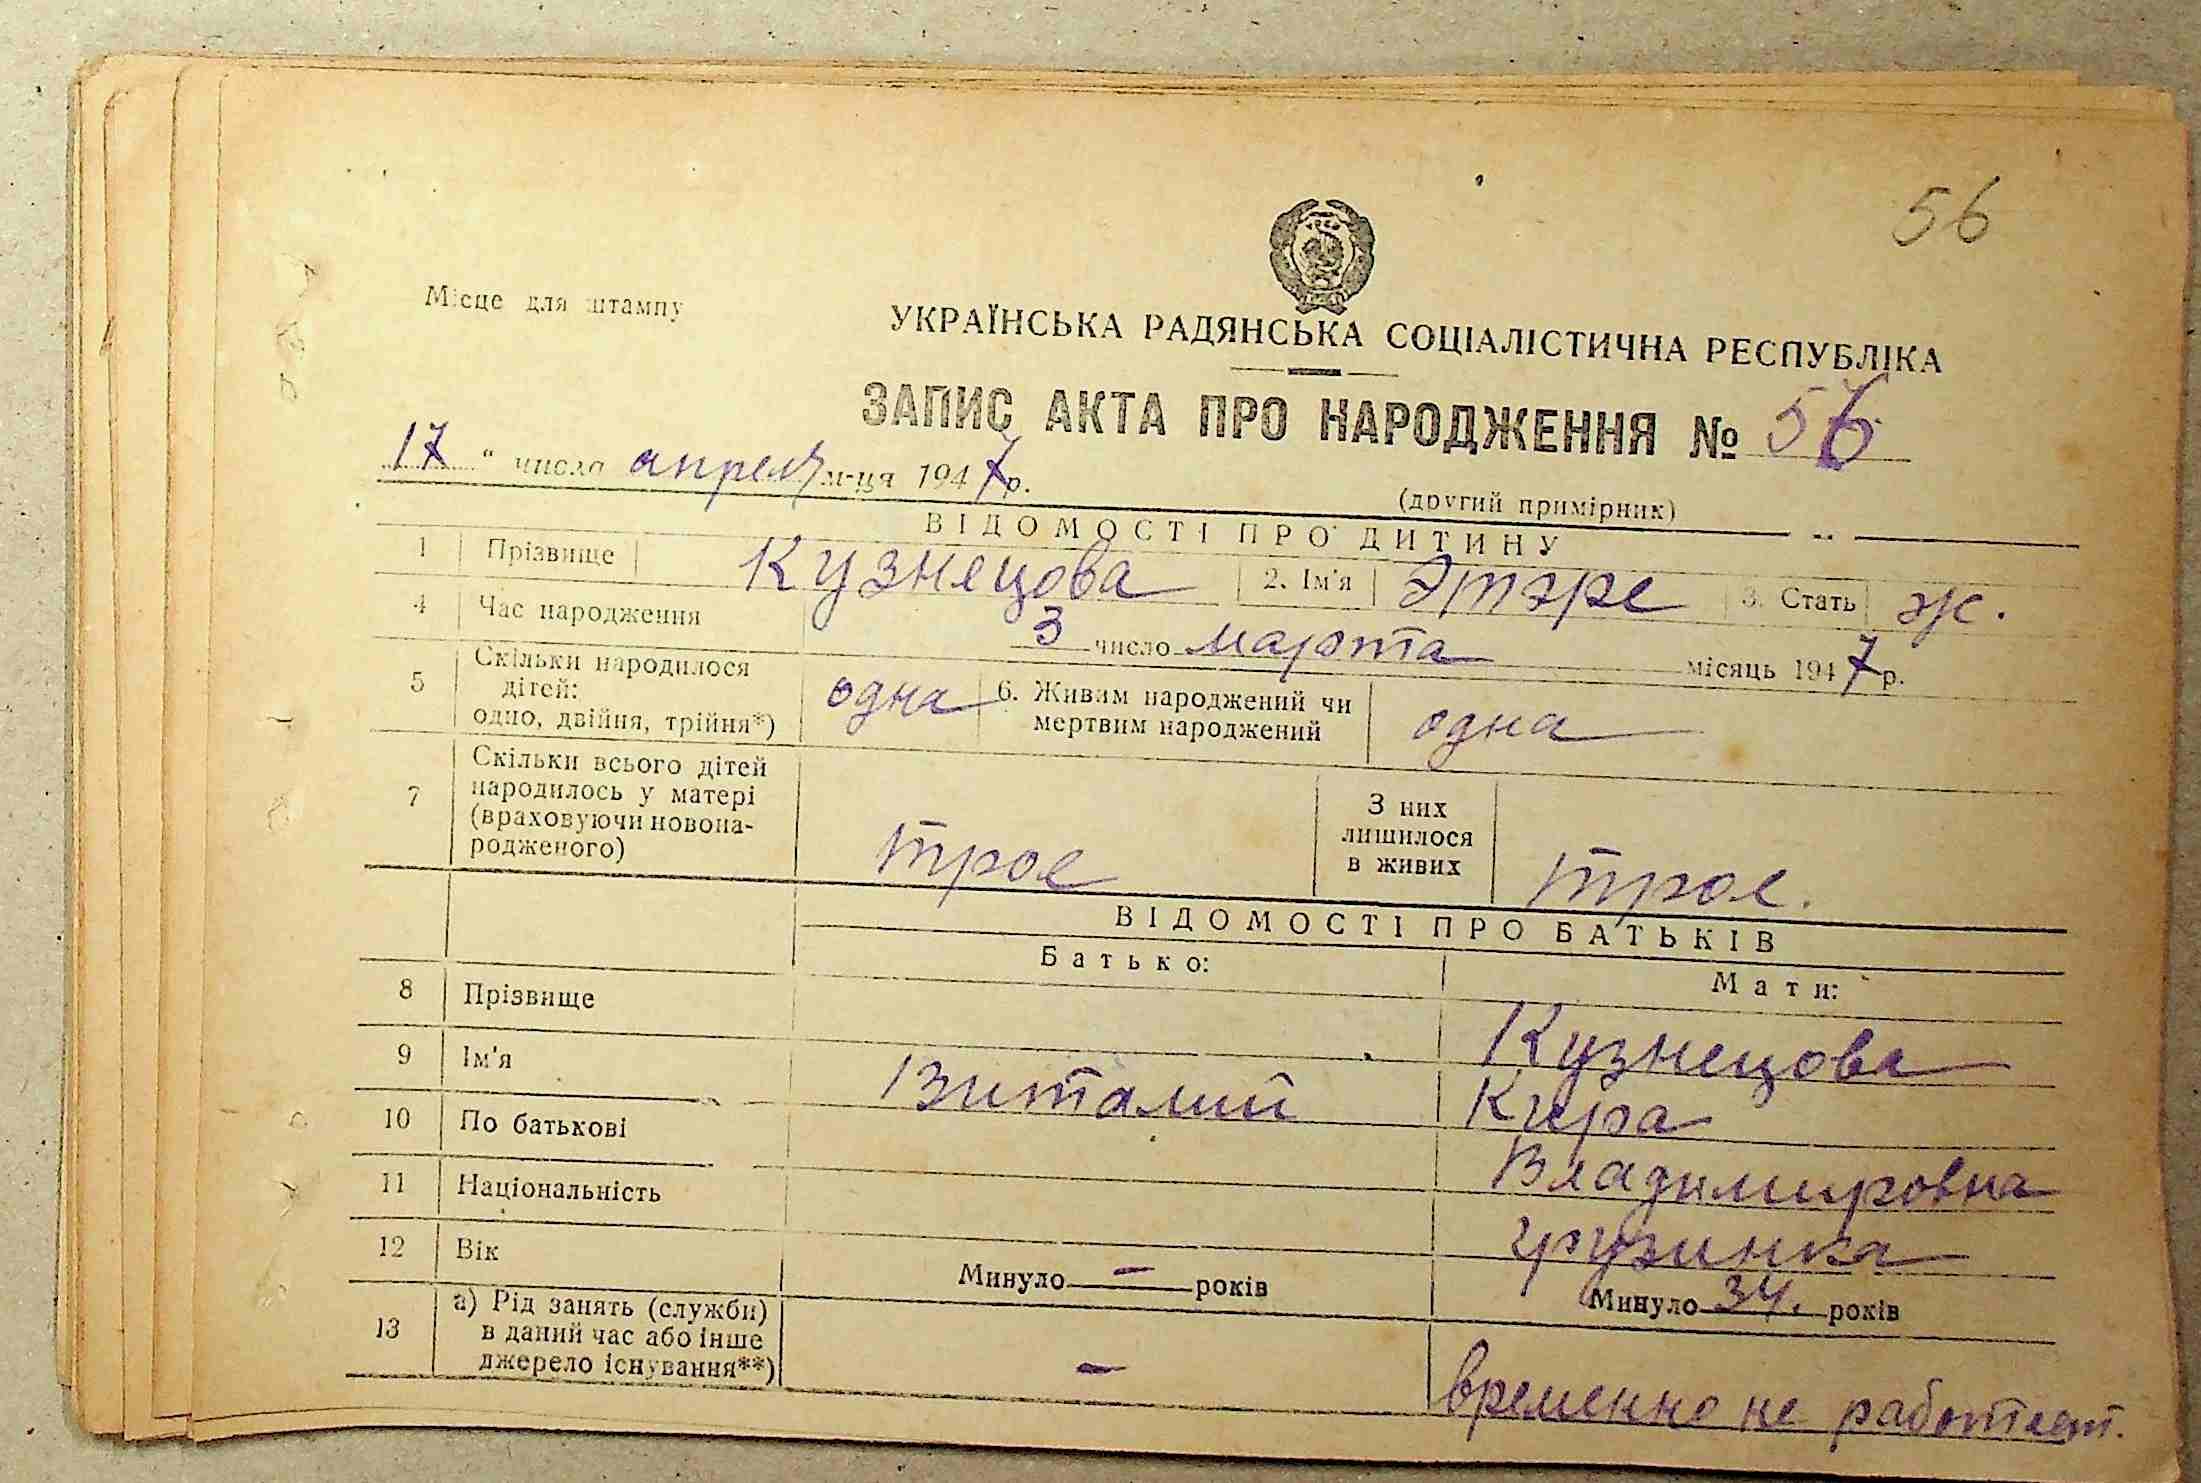 56
Місце для штампу
УКРАЇНСЬКА РАДЯНСЬКА СОЦІАЛІСТИЧНА РЕСПУБЛІКА
ЗАПИС АКТА ПРО НАРОДЖЕННЯ № 56
17 " числа апреля м-ця 1947 р.
(другий примірник)
ВІДОМОСТІ ПРО ДИТИНУ
1 Прізвище Кузнецова 2. Ім'я Этэре 3. Стать ж.
4 Час народження 3 число марта місяць 1947 р.
5 Скільки народилося
дітей:
одно, двійня, трійня*) одна
6. Живим народжений чи
мертвим народжений одна
7 Скільки всього дітей
народилось у матері
(враховуючи новона-
родженого) трое
З них
лишилося
в живих трое.
ВІДОМОСТІ ПРО БАТЬКІВ
Батько: Мати:
8 Прізвище Кузнецова
9 Ім'я Виталий Кира
10 По батькові Владимировна
11 Національність грузинка
12 Вік Минуло — років Минуло 34. років
13 а) Рід занять (служби)
в даний час або інше
джерело існування**) — временно не работает.